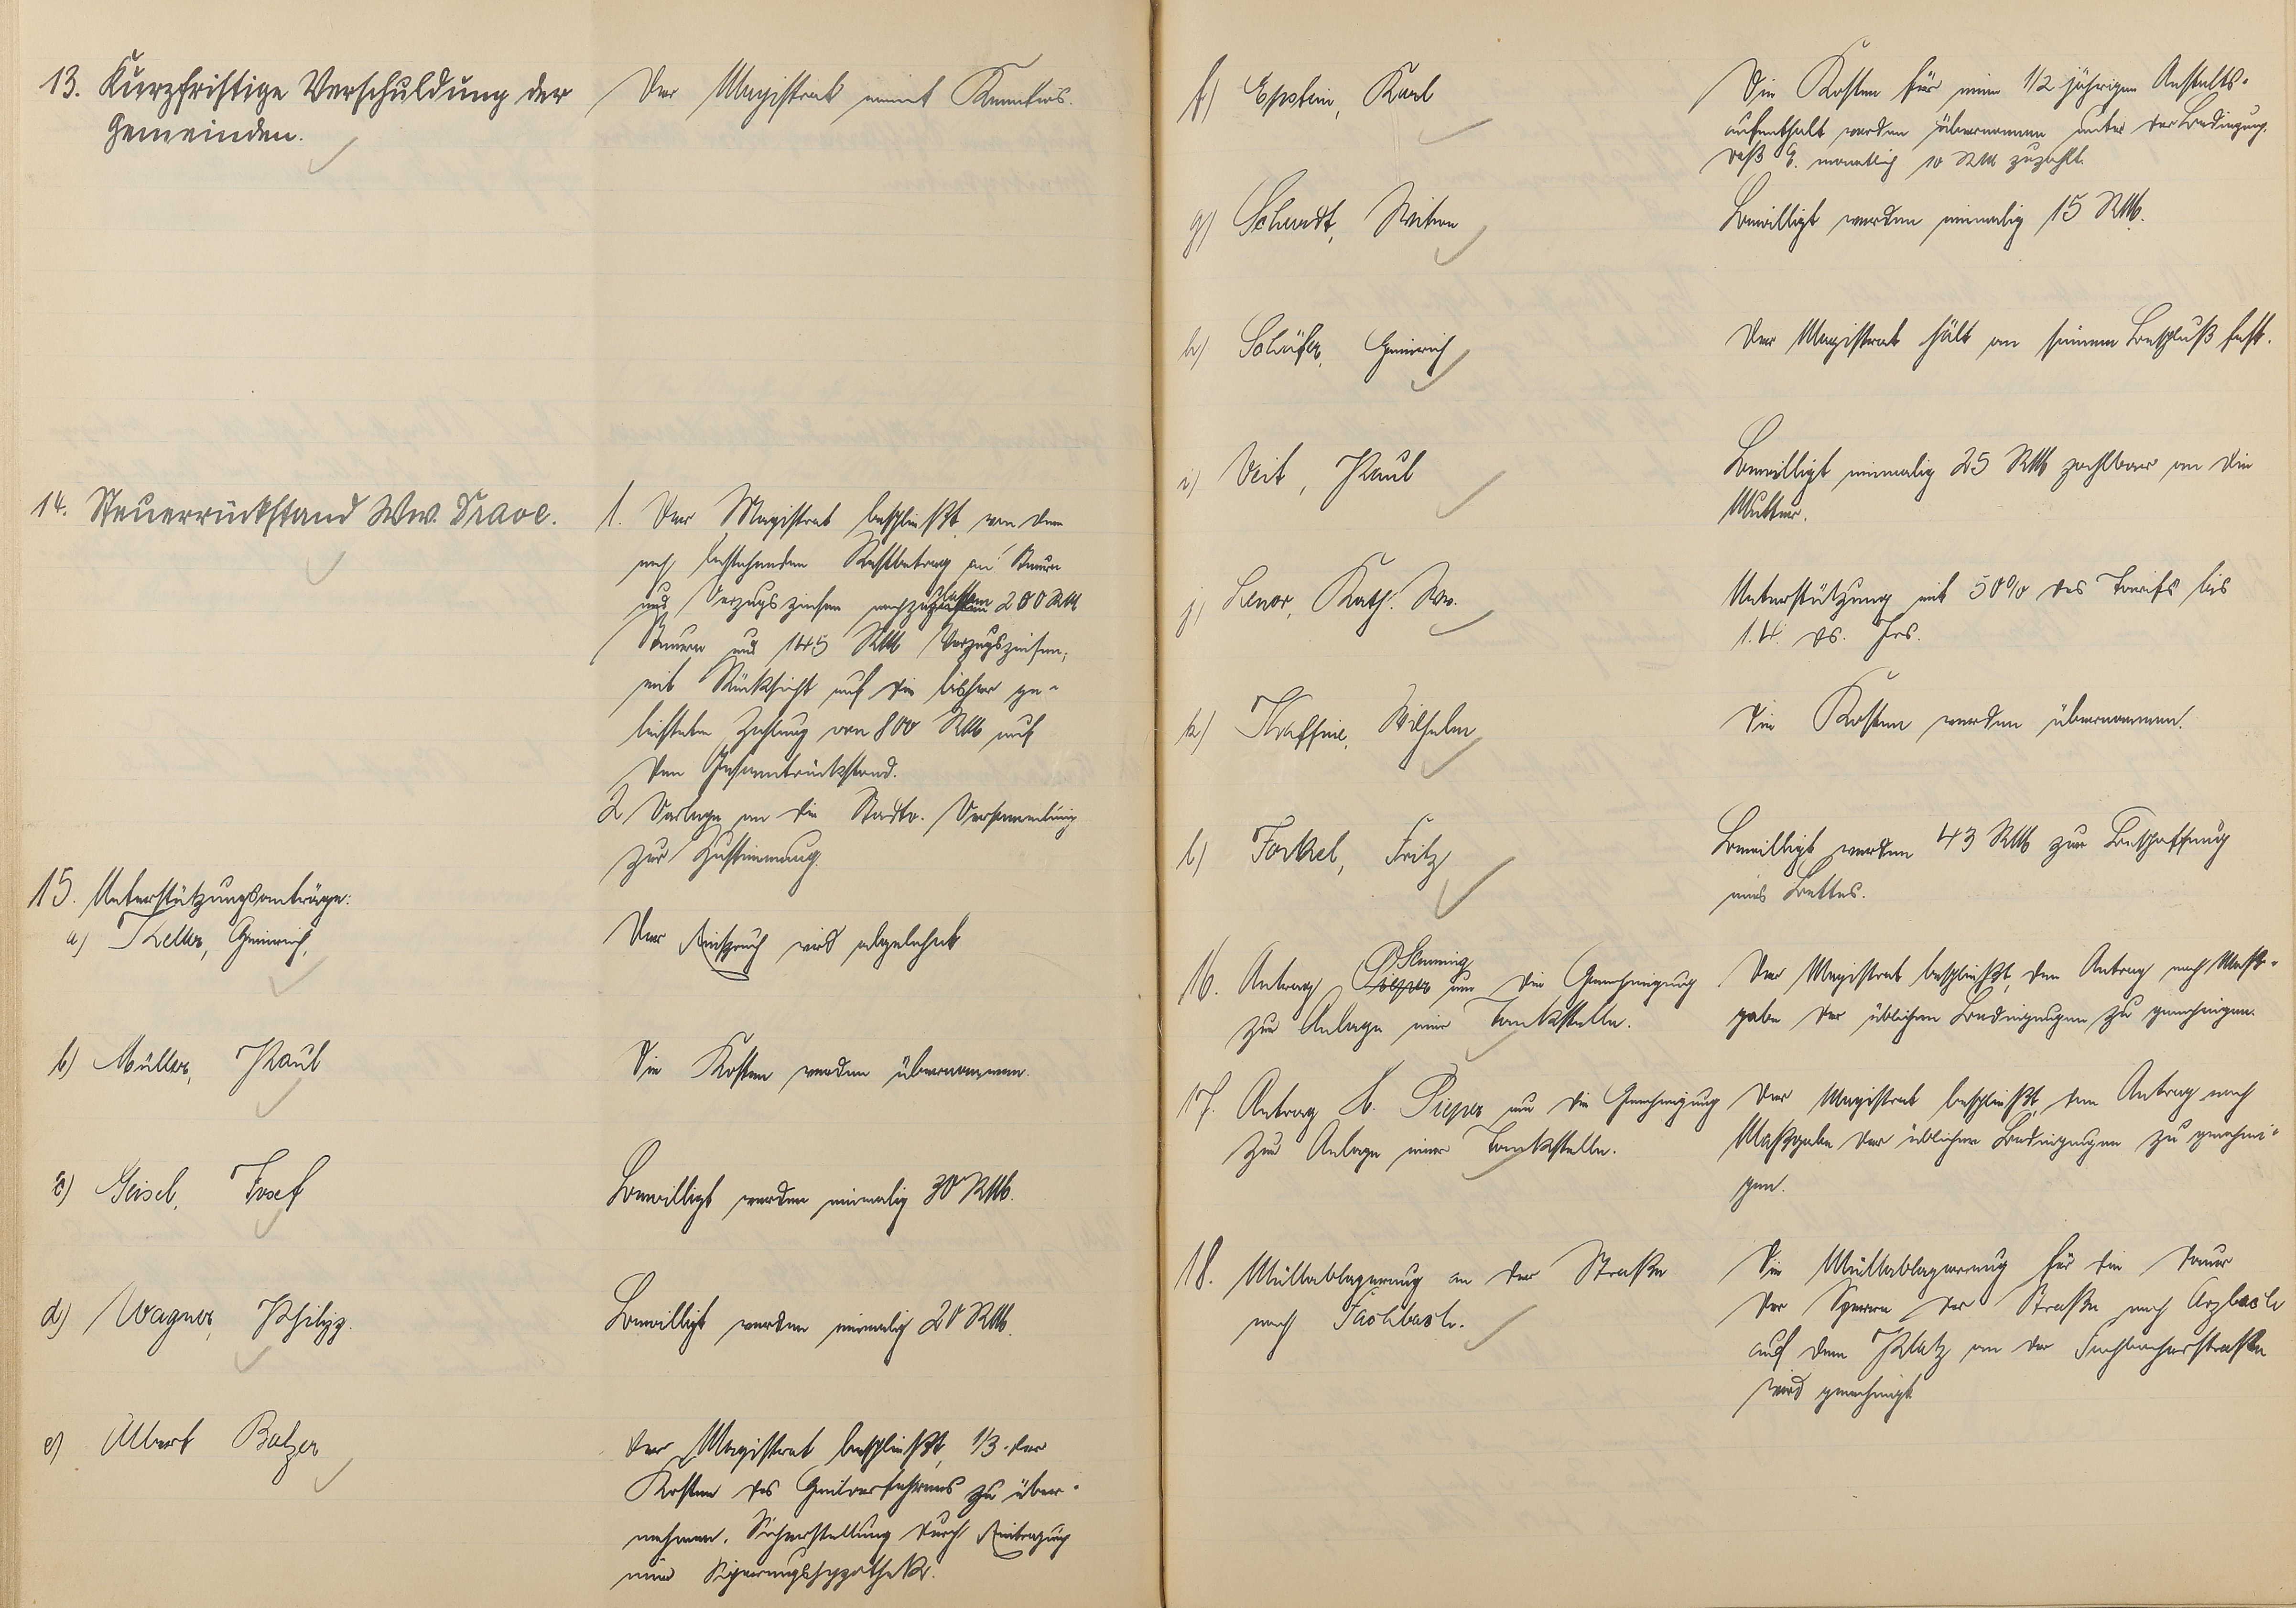 13. Kurzfristige Verschuldung der
Gemeinden.
Der Magistrat nimmt Kenntnis.
14. Steuerrückstand Ww. Trave.
1. Der Magistrat beschließt, von dem
noch bestehenden Restbetrag an Steuern
und Verzugszinsen 200 RM
Steuern und 1445 RM Verzugszinsen,
mit Rücksicht auf die bisher ge-
leistete Zahlung von 800 RM auf
den Gesamtrückstand.
2 Vorlage an die Stadtv. Versammlung
zur Zustimmung.
15. Unterstützungsanträge:
a) Keller, Heinrich,
Der Einspruch wird abgelehnt
b) Müller, Paul
Die Kosten werden übernommen.
c) Geisel, Josef
Bewilligt werden einmalig 30 RM.
d) Wagner, Philipp.
Bewilligt werden einmalig 20 RM.
e) Albert Balzer
Der Magistrat beschließt, 1/3 der
Kosten des Heilverfahrens zu über-
nehmen. Sicherstellung durch Eintragung
einer Sicherungshypothek.
f) Epstein, Karl
Die Kosten für einen 1/2 jährigen Anstalts-
aufenthalt werden übernommen unter der Bedingung,
daß E. monatlich 10 RM zuzahlt.
g) Schmidt, Witwe
Bewilligt werden einmalig 15 RM.
h) Schäfer, Heinrich
Der Magistrat hält an seinem Beschluß fest.
i) Veit, Paul
Bewilligt einmalig 25 RM zahlbar an die
Mutter.
j) Kath. Ww.
Unterstützung mit 50% des Tarifs bis
1.4. ds. Jrs.
k) Wilhelm
Die Kosten werden übernommen.
l) Forkel, Fritz
Bewilligt werden 43 RM zur Beschaffung
eines Bettes.
16. Antrag Pieper um die Genehmigung
zur Anlage einer Tankstelle.
Der Magistrat beschließt, dem Antrag nach Maß-
gabe der üblichen Bedingungen zu genehmigen.
17. Antrag H. Pieper um die Genehmigung
zur Anlage einer Tankstelle.
Der Magistrat beschließt, dem Antrag nach
Maßgabe der üblichen Bedingungen zu genehmi-
gen.
18. Müllablagerung an der Straße
nach Fachbach.
Die Müllablagerung für die Dauer
der Sperre der Straße nach Arzbach
auf dem Platz an der Fachbacherstraße
wird genehmigt